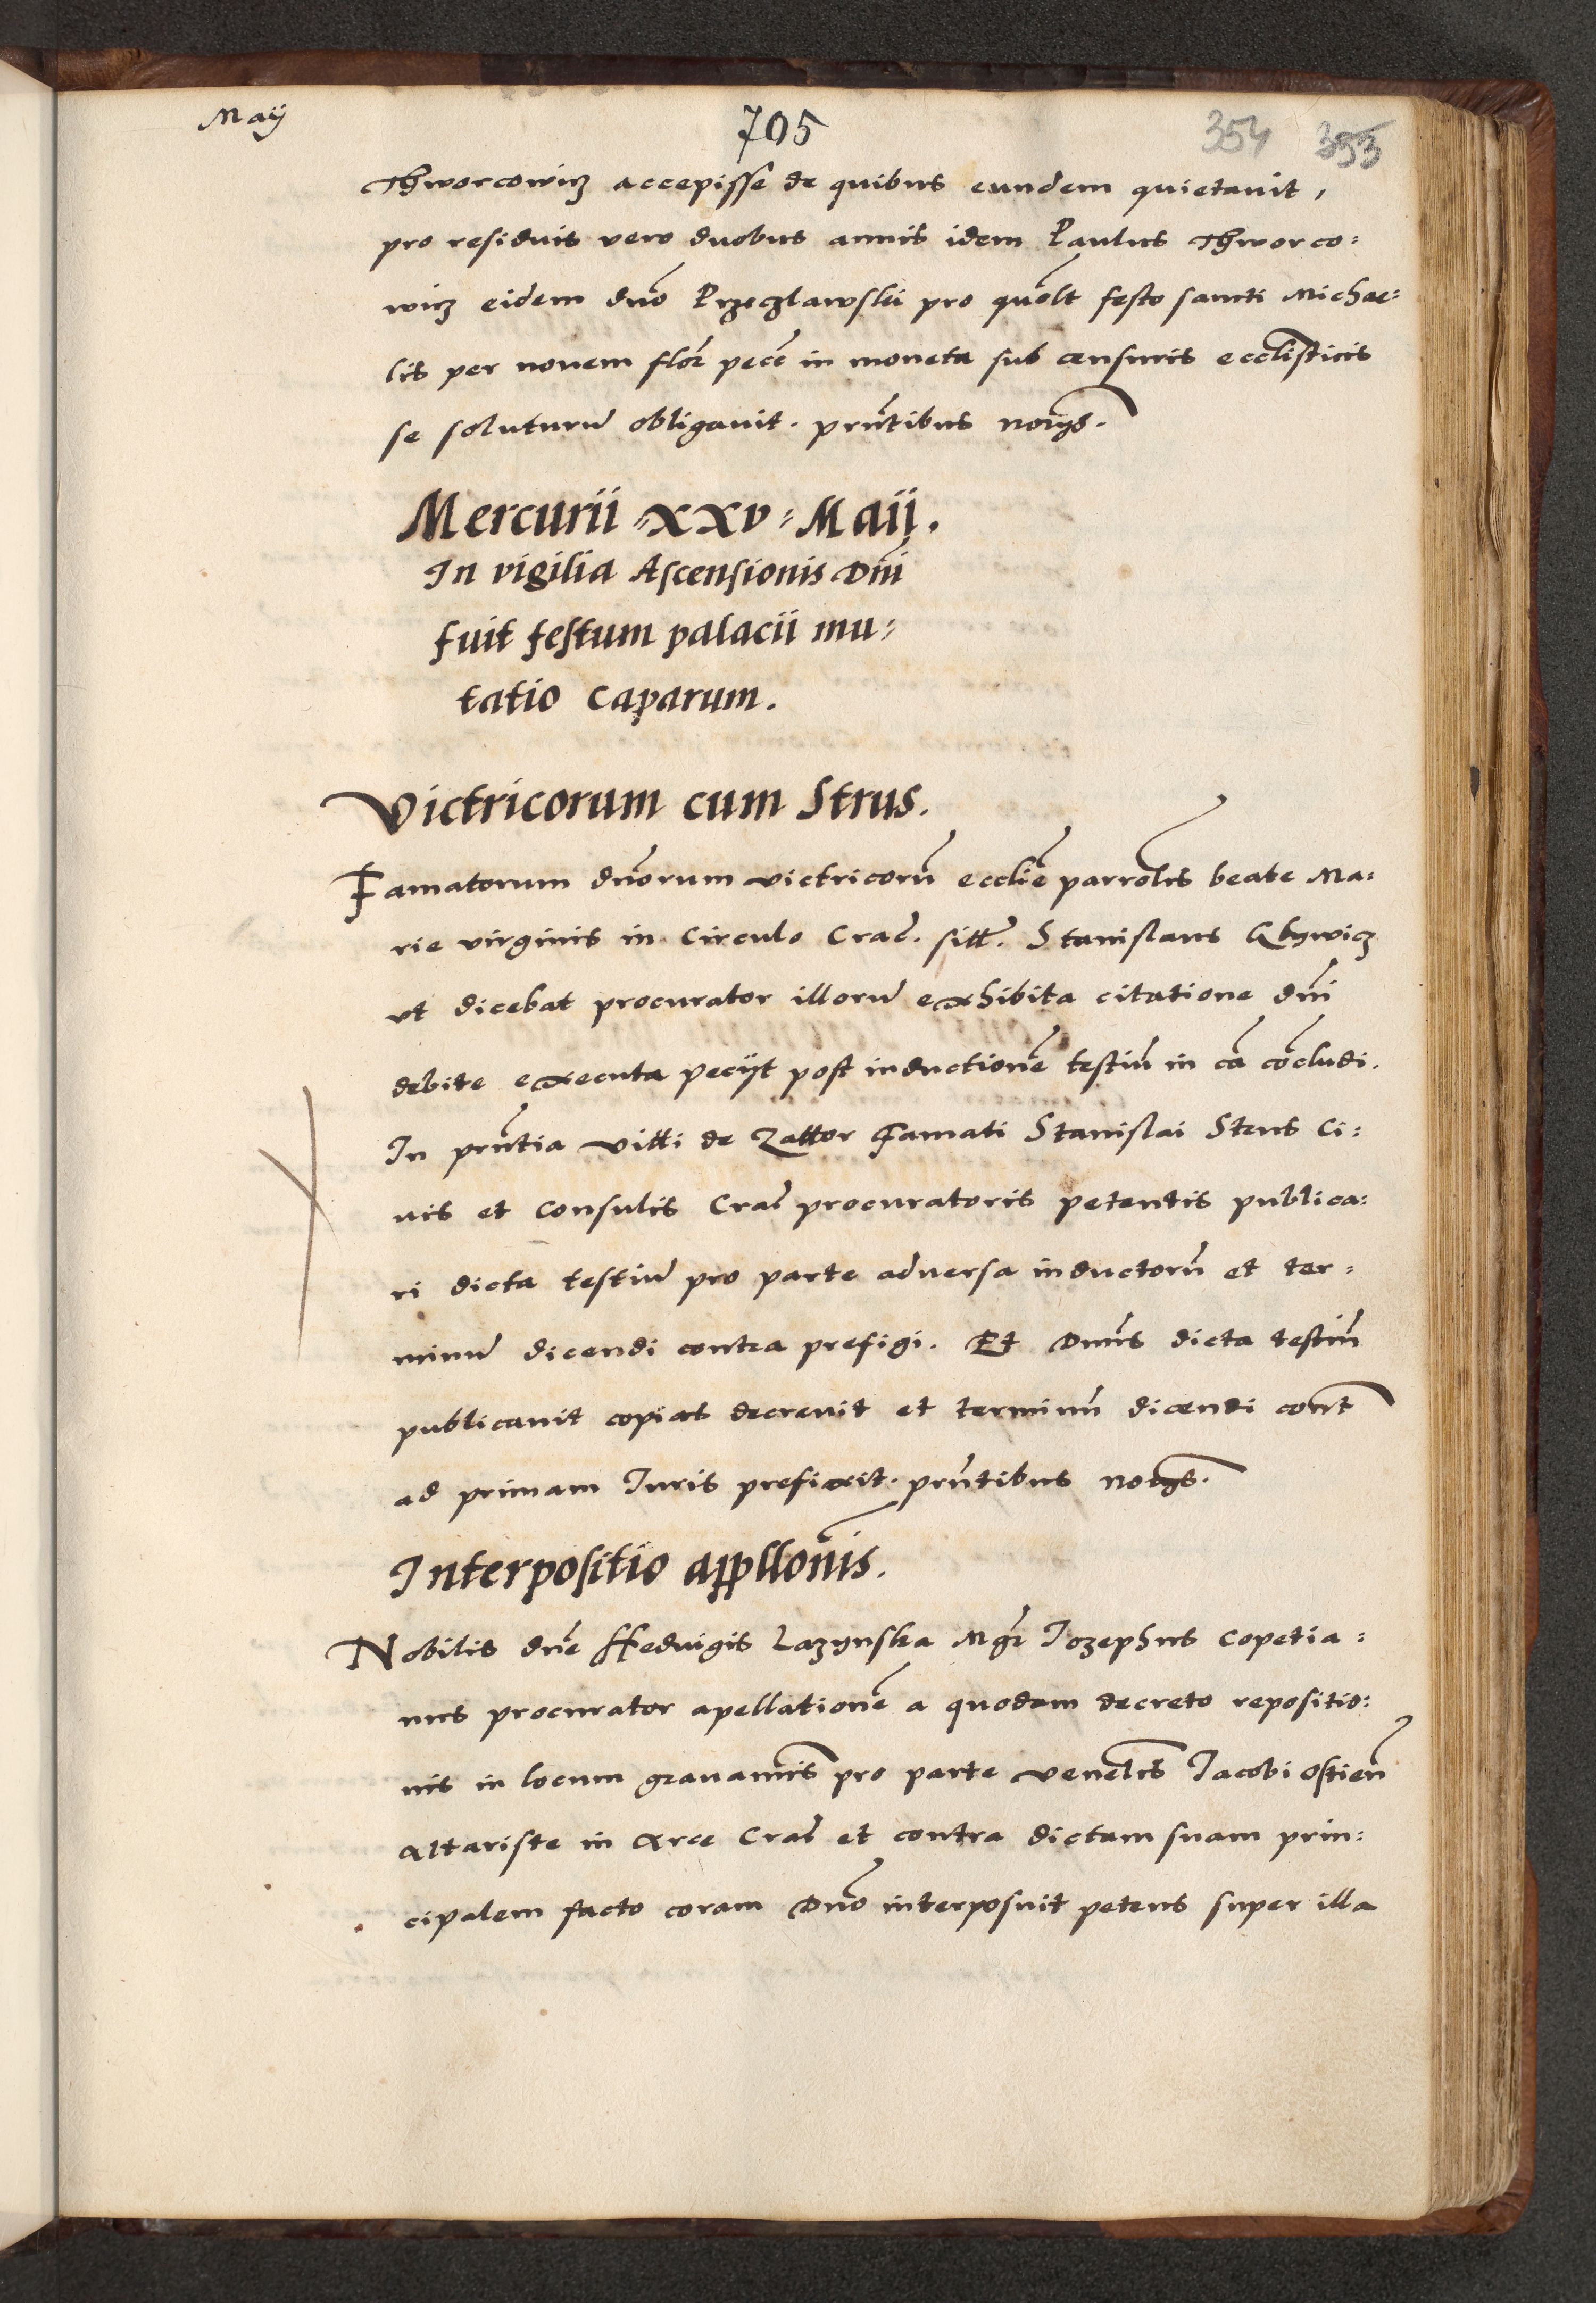 Maij
705
354 353
Thworcowicz accepisse de quibus eundem quietavit,
pro residuis vero duobus annis idem Paulus Thworco=
wicz eidem dno Przeczlawski pro quolt festo sancti Michae=
lis per novem flor pecc in moneta sub censuris eccllisticis
se soluturu obligavit. pntibus norys.
Mercurii =xxv= Maij.
In vigilia Ascensionis Dni
fuit festum palacii mu=
tatio caparum.
Victricorum cum Strus.
Famatorum dnorum victricoru ecclie parrolis beate Ma=
rie virginis in Circulo Crac. sill. Stanislaus
ut dicebat procurator illoru exhibita citatione dni
debite executa peciit post inductione testiu in ca cocludi.
In pntia Villi de Zattor Famati Stanislai Strus Ci=
vis et Consulis Crac procuratoris petentis publica=
ri dicta testiu pro parte adversa inductoru et ter=
minu dicendi contra prefigi. Et Dnus dicta testiu
publicavit copias decrevit et terminu dicendi cont
ad primam Iuris prefixit. pntibus notys.
Interpositio appllonis.
Nobilis dne Hedvigis Lazynska Mgr Iozephus Copetia=
nus procurator apellatione a quodam decreto repositio=
nis in locum gravamis pro parte venelis Iacobi Ostien
altariste in Arce Crac et contra dictam suam prin=
cipalem facto coram Dno interposuit petens super illa